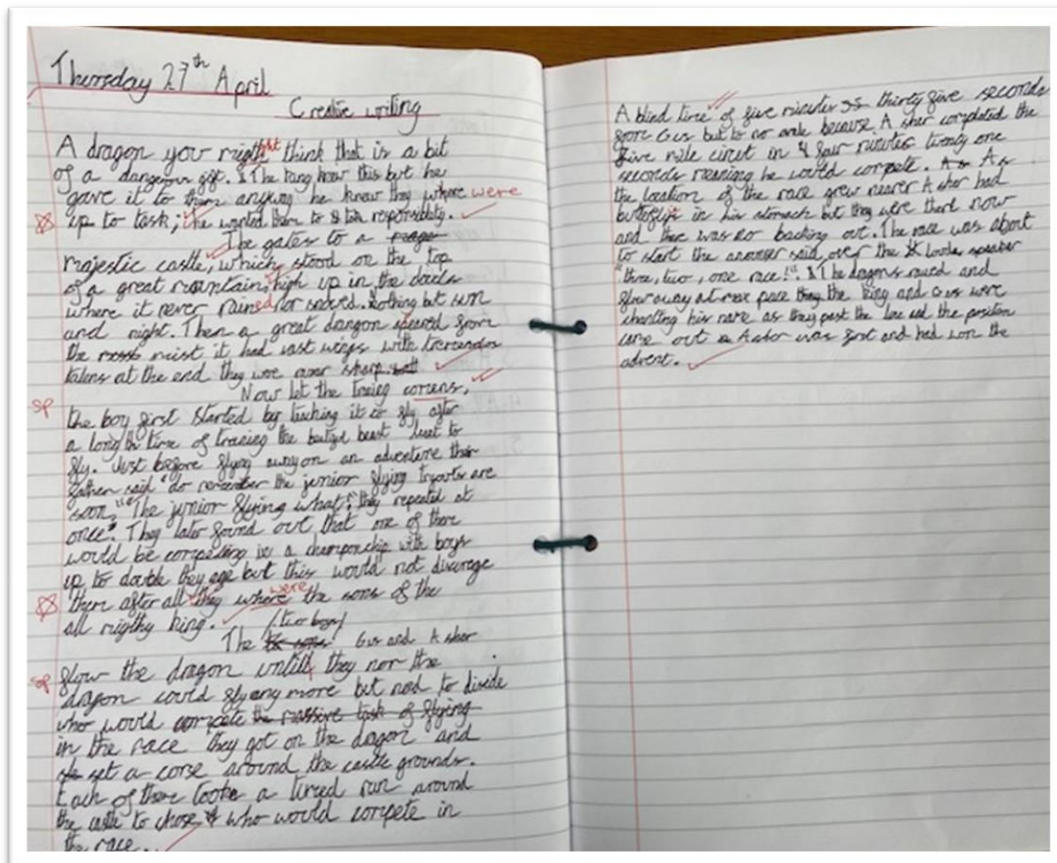 Thursday 27th April
Creative writing
A dragon you migth think that is a bit
of a dangerous gift. The king knew this but he
gave it to them anyway he knew they where were
up to task; he wanted them to responsibility.
The gates to a
majestic castle, which stood on the top
of a great mountain, high up in the clouds
where it never rained nor snowed. Nothing but sun
and night. Then a great dragon from
the mist it had vast wings with
talens at the end they were sharp
Now let the traing comens,
sp
the boy first started by teaching it to fly after
a long time of traning the beast to
fly. Just before flying away on an adventure their
father said "do remember the junior flying tryouts are
soon." "The junior flying what?" they repeated at
once". They later found out that one of them
would be compeating in a championchip with boys
up to double they age but this would not discurage
them after all they where were the sons of the
all migthy king.
two boys
The Gus and Asher
sp
flow the dragon untill they nor the
dragon could fly any more but now to divide
who would compete the massive task of flying
in the race they got on the dragon and
set a corse around the castle grounds.
Each of them tooke a timed run around
the castle to chose who would compete in
the race.
A blind time of five minutes thirty five seconds
from Gus but to no avale because Asher completed the
five mile circut in four minutes twenty one
seconds meaning he would compete. As
the location of the race grew nearer Asher had
in his stomach but they were there now
and there was no backing out. The race was about
to start the said over the speaker
"three, two, one race!". The dragons and
flew away at max pace the king and Gus were
chanting his name as they past the line and the position
came out Asher was first and had won the
advent.